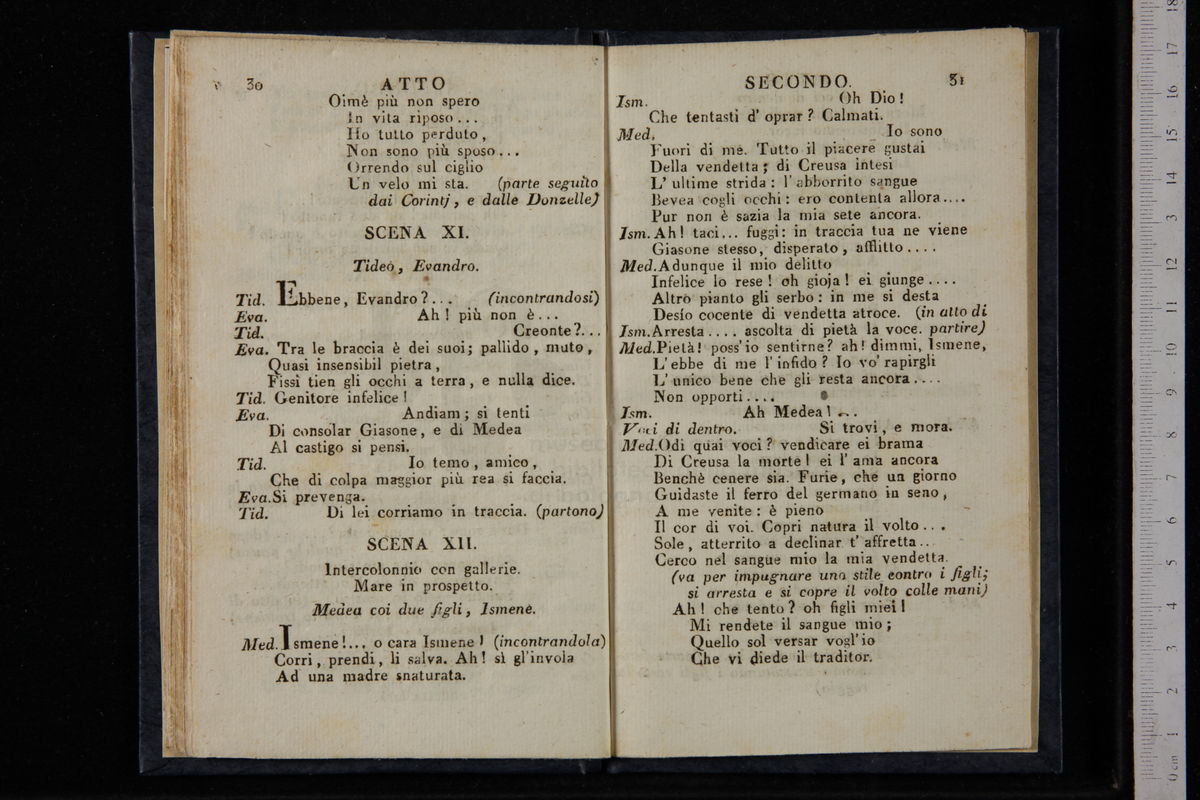 30 ATTO
Oimè più non spero
In vita riposo...
Ho tutto perduto,
Non sono più sposo...
Orrendo sul ciglio
Un velo mi sta. (parte seguito
dai Corintj, e dalle Donzelle)
SCENA XI.
Tideo, Evandro.
Tid. Ebbene, Evandro?... (incontrandosi)
Eva. Ah! più non è...
Tid. Creonte?...
Eva. Tra le braccia è dei suoi; pallido, muto,
Quasi insensibil pietra,
Fissi tien gli occhi a terra, e nulla dice.
Tid. Genitore infelice!
Eva. Andiam; si tenti
Di consolar Giasone, e di Medea
Al castigo si pensi.
Tid. Io temo, amico,
Che di colpa maggior più rea si faccia.
Eva. Si prevenga.
Tid. Di lei corriamo in traccia. (partono)
SCENA XII.
Intercolonnio con gallerie.
Mare in prospetto.
Medea coi due figli, Ismene.
Med. Ismene!... o cara Ismene! (incontrandola)
Corri, prendi, li salva. Ah! sì gl'invola
Ad una madre snaturata.
SECONDO. 31
Ism. Oh Dio!
Che tentasti d'oprar? Calmati.
Med. Io sono
Fuori di me. Tutto il piacere gustai
Della vendetta; di Creusa intesi
L'ultime strida: l'abborrito sangue
Bevea cogli occhi: ero contenta allora....
Pur non è sazia la mia sete ancora.
Ism. Ah! taci... fuggi: in traccia tua ne viene
Giasone stesso, disperato, afflitto....
Med. Adunque il mio delitto
Infelice lo rese! oh gioja! ei giunge....
Altro pianto gli serbo: in me si desta
Desío cocente di vendetta atroce. (in atto di
Ism. Arresta.... ascolta di pietà la voce. partire)
Med. Pietà! poss'io sentirne? ah! dimmi, Ismene,
L'ebbe di me l'infido? Io vo' rapirgli
L'unico bene che gli resta ancora....
Non opporti....
Ism. Ah Medea!...
Voci di dentro. Si trovi, e mora.
Med. Odi quai voci? vendicare ei brama
Di Creusa la morte! ei l'ama ancora
Benchè cenere sia. Furie, che un giorno
Guidaste il ferro del germano in seno,
A me venite: è pieno
Il cor di voi. Copri natura il volto...
Sole, atterrito a declinar t'affretta...
Cerco nel sangue mio la mia vendetta.
(va per impugnare uno stile contro i figli;
si arresta e si copre il volto colle mani)
Ah! che tento? oh figli miei!
Mi rendete il sangue mio;
Quello sol versar vogl'io
Che vi diede il traditor.
0 cm 1 2 3 4 5 6 7 8 9 10 11 12 13 14 15 16 17 18